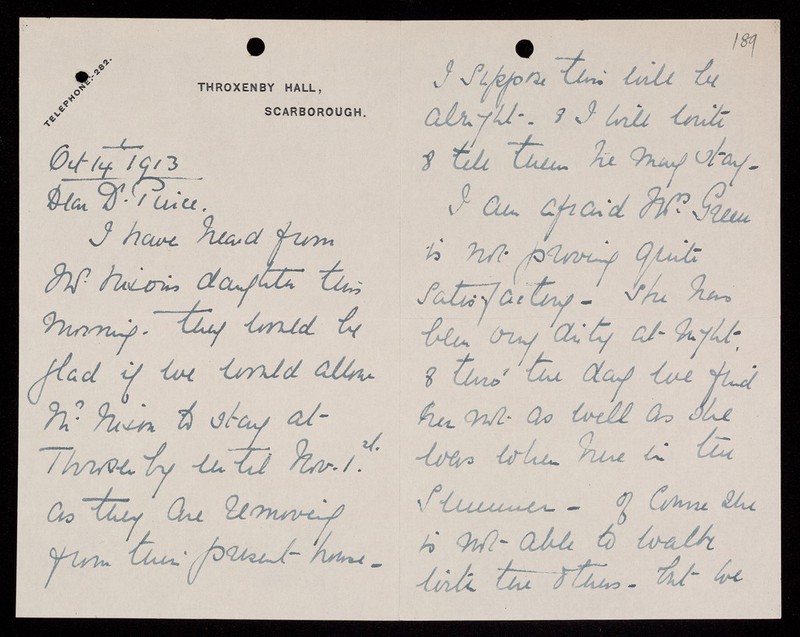 TELEPHONE:-282.
THROXENBY HALL,
SCARBOROUGH.
Oct 14th 1913
Dear Dr. Pierce.
I have heard from
Mr. Nixon's daughter this
morning. they would be
glad if we would allow
Mr. Nixon to stay at
Throxenby until Nov. 1st.
as they are removing
from their present house -
189
I suppose this will be
alright. & I will write
& tell them he may stay -
I am afraid Mrs. Green
is not proving quite
satisfactory - She has
been very dirty at night.
& thro' the day we find
her not as well as she
was when here in the
Summer - of course she
is not able to walk
with the others - but we